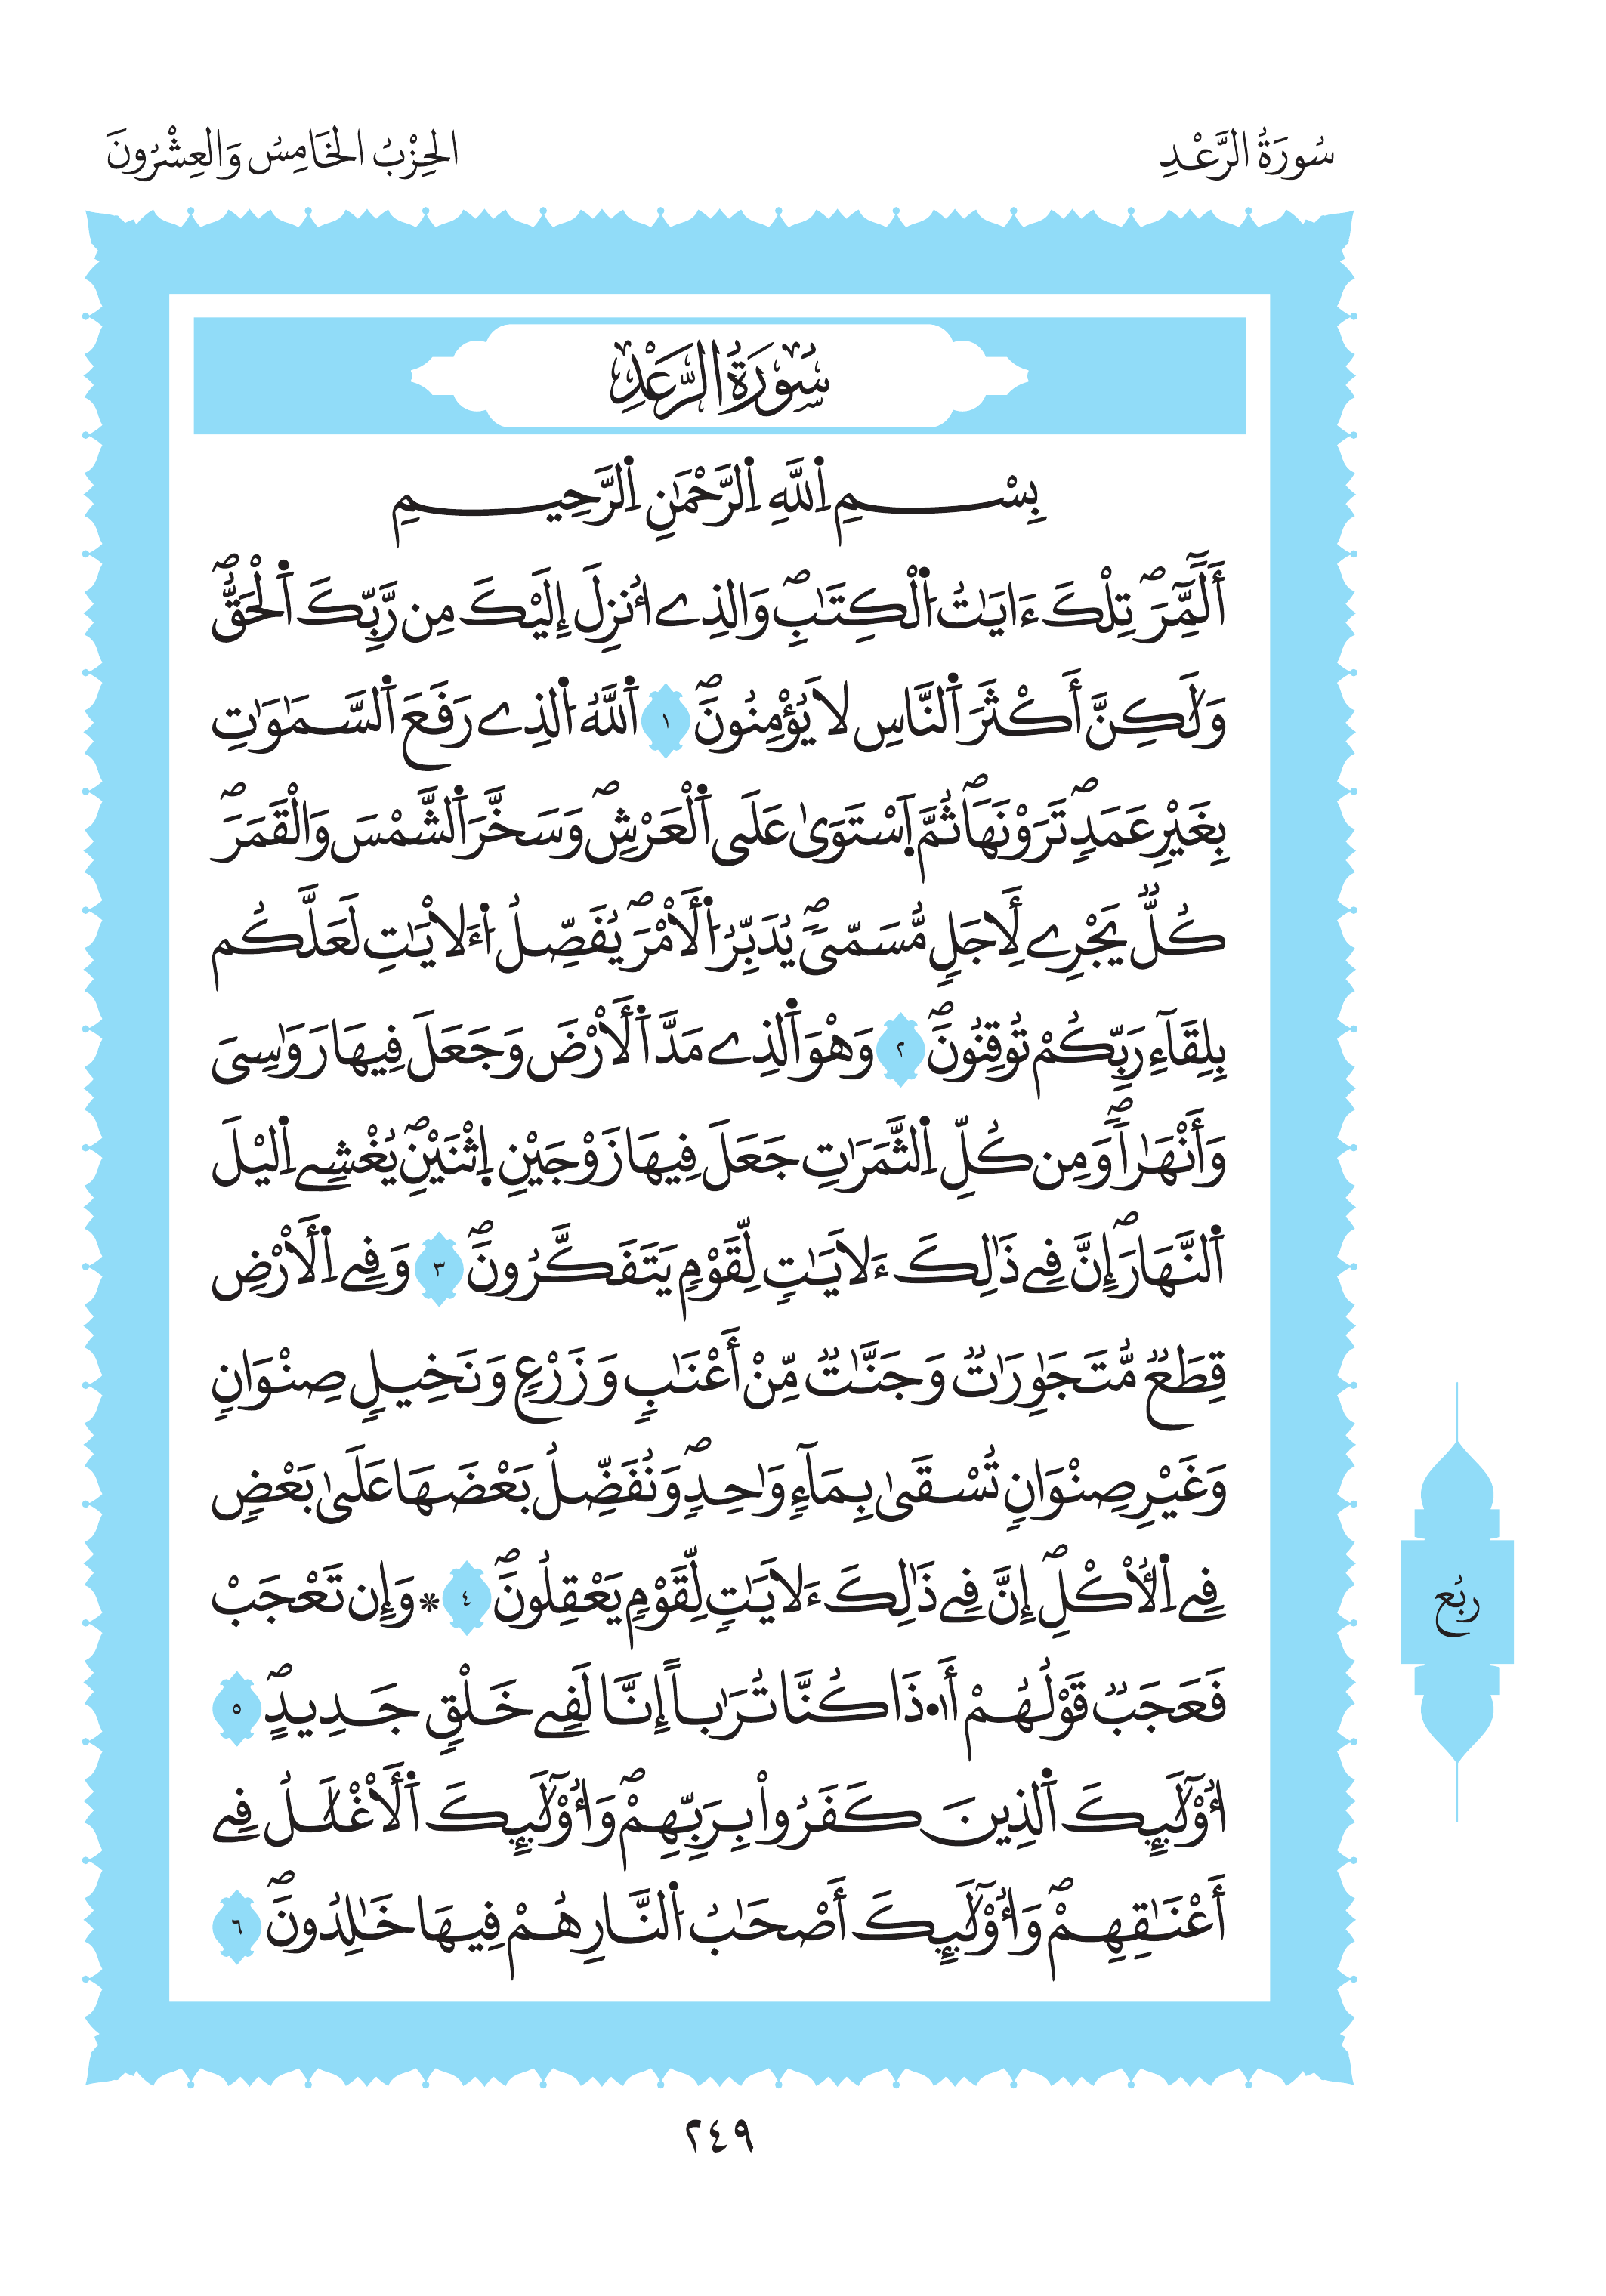 سُورَةُ الرَّعْدِ
الحِزْبُ الخَامِسُ وَالعِشْرُونَ
سُورَةُ الرَّعْدِ
بِسْمِ اِ۬للَّهِ اِ۬لرَّحْمَٰنِ اِ۬لرَّحِيمِ
أَلَٓمِّٓرَۖ تِلْكَ ءَايَٰتُ اُ۬لْكِتَٰبِۖ وَالذِےٓ أُنزِلَ إِلَيْكَ مِن رَّبِّكَ اَ۬لْحَقُّۖ
وَلَٰكِنَّ أَكْثَرَ اَ۬لنَّاسِ لَا يُؤْمِنُونَۖ ١ اَ۬للَّهُ اُ۬لذِے رَفَعَ اَ۬لسَّمَٰوَٰتِ
بِغَيْرِ عَمَدٖ تَرَوْنَهَاۖ ثُمَّ اَ۪سْتَوَىٰ عَلَى اَ۬لْعَرْشِۖ وَسَخَّرَ اَ۬لشَّمْسَ وَالْقَمَرَۖ
كُلّٞ يَجْرِے لِأَجَلٖ مُّسَمّيٗۖ يُدَبِّرُ اُ۬لْأَمْرَۖ يُفَصِّلُ اُ۬ءَلْأيَٰتِ لَعَلَّكُم
بِلِقَآءِ رَبِّكُمْ تُوقِنُونَۖ ٢ وَهْوَ اَ۬لذِے مَدَّ اَ۬لْأَرْضَ وَجَعَلَ فِيهَا رَوَٰسِيَ
وَأَنْهَٰراٗۖ وَمِن كُلِّ اِ۬لثَّمَرَٰتِ جَعَلَ فِيهَا زَوْجَيْنِ اِ۪ثْنَيْنِۖ يُغْشِے اِ۬ليْلَ
اَ۬لنَّهَارَۖ إِنَّ فِے ذَٰلِكَ ءَلَايَٰتٖ لِّقَوْمٖ يَتَفَكَّرُونَۖ ٣ وَفِے اِ۬لْأَرْضِ
قِطَعٞ مُّتَجَٰوِرَٰتٞ وَجَنَّٰتٞ مِّنْ أَعْنَٰبٖ وَزَرْعٖ وَنَخِيلٖ صِنْوَانٖ
وَغَيْرِ صِنْوَانٖ تُسْقَىٰ بِمَآءٖ وَٰحِدٖۖ وَنُفَضِّلُ بَعْضَهَا عَلَىٰ بَعْضٖ
فِے اِ۬لْأُكْلِۖ إِنَّ فِے ذَٰلِكَ ءَلَايَٰتٖ لِّقَوْمٖ يَعْقِلُونَۖ ٤ * وَإِن تَعْجَبْ
فَعَجَبٞ قَوْلُهُمْ أَ.ٰذَا كُنَّا تُرَٰباً إِنَّا لَفِے خَلْقٖ جَدِيدٍۖ ٥
اُوْلَٰٓئِكَ اَ۬لذِينَ كَفَرُواْ بِرَبِّهِمْۖ وَأُوْلَٰٓئِكَ اَ۬لْأَغْلَٰلُ فِے
أَعْنَٰقِهِمْۖ وَأُوْلَٰٓئِكَ أَصْحَٰبُ اُ۬لنَّارِ هُمْ فِيهَا خَٰلِدُونَۖ ٦
ربُع
٢٤٩